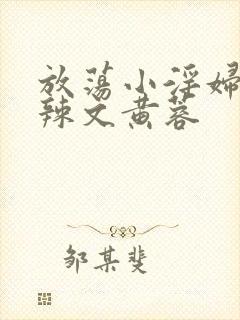 放荡小淫婦
辣文黄蓉
邹某斐